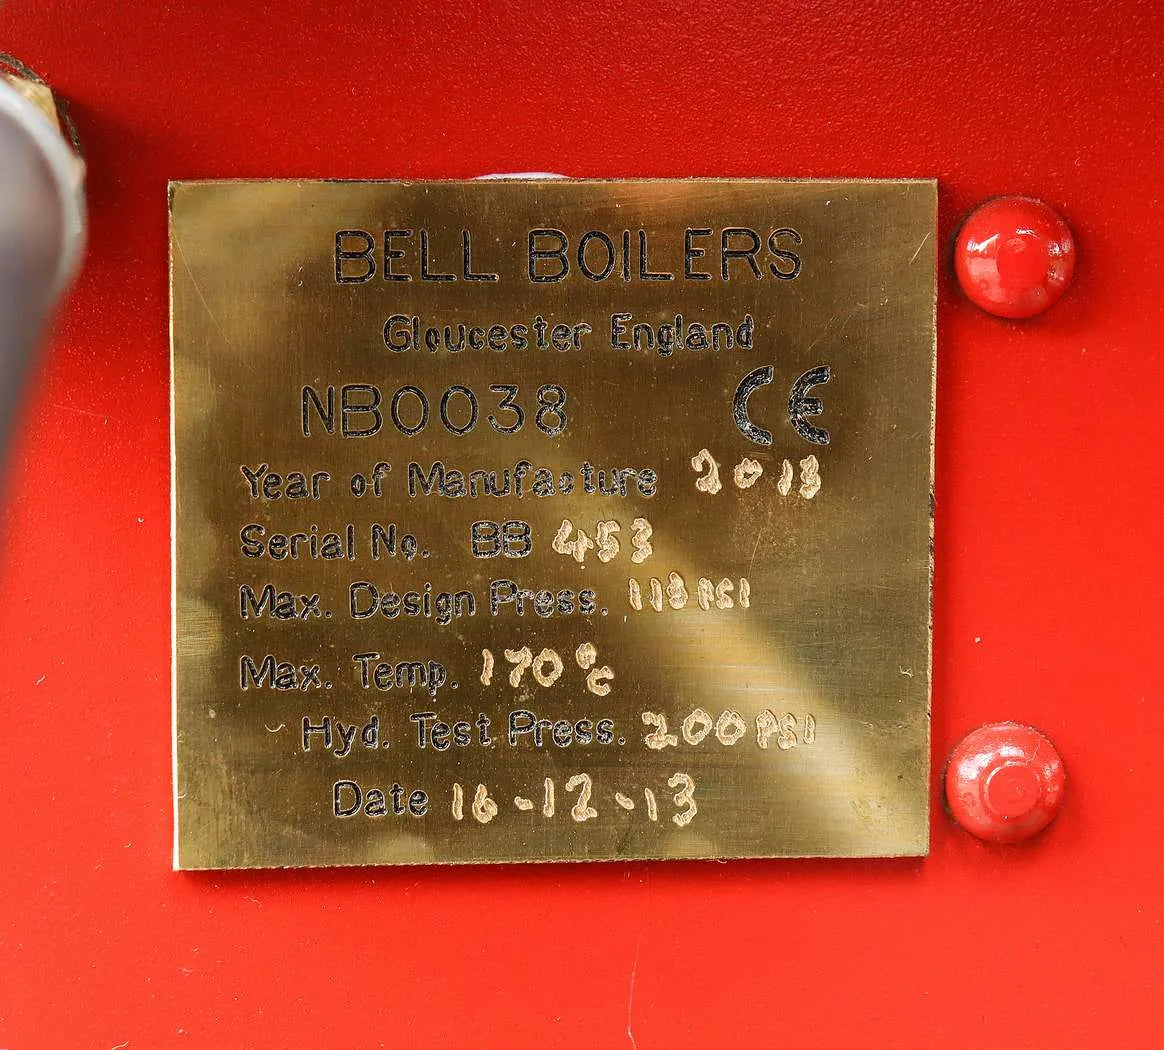 BELL BOILERS
Gloucester England
NB0038 CE
Year of Manufacture 2013
Serial No. BB 453
Max. Design Press. PSI
Max. Temp. 170°c
Hyd. Test Press. 200 PSI
Date 16-12-13